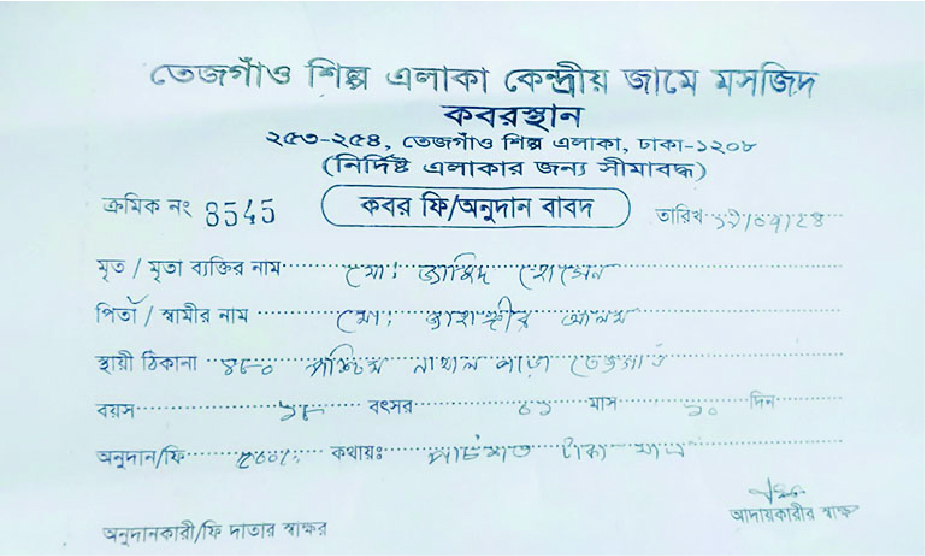 তেজগাঁও শিল্প এলাকা কেন্দ্রীয় জামে মসজিদ
কবরস্থান
২৫৩-২৫৪, তেজগাঁও শিল্প এলাকা, ঢাকা-১২০৮
(নির্দিষ্ট এলাকার জন্য সীমাবদ্ধ)
ক্রমিক নং 8545 কবর ফি/অনুদান বাবদ তারিখ
মৃত / মৃতা ব্যক্তির নাম মো: জাহিদ হোসেন
পিতা / স্বামীর নাম মো: জাহাঙ্গীর আলম
স্থায়ী ঠিকানা পশ্চিম নাখাল পাড়া তেজগাঁও
বয়স ১৮ বৎসর মাস ১০ দিন
অনুদান/ফি ৫০০/= কথায়ঃ পাঁচশত টাকা মাত্র
আদায়কারীর স্বাক্ষর
অনুদানকারী/ফি দাতার স্বাক্ষর